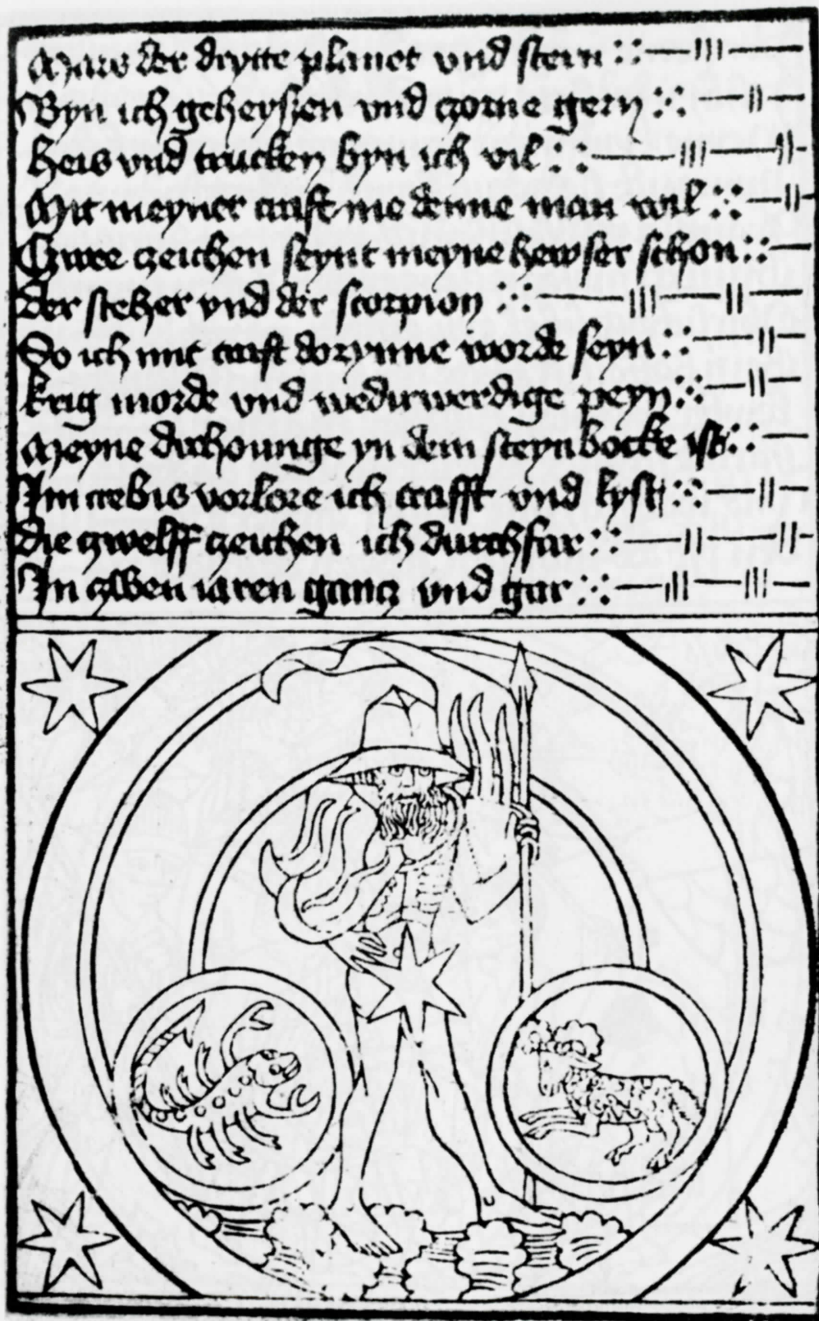 Mars der drytte planet und stern
Byn ich geheysen vnd czorne gern
Heis vnd trucken byn ich vil
Mit meyner craft me denne man wil
Czwee zeichen seynt meyne hewser schon
der steher vnd der scorpion
So ich mit craft dorynne worde seyn
krig morde vnd wedirwerdige peyn
Meyne dirhounge yn dem steynbocke ist
Im crebis vorlore ich crafft vnd lyst
die czwelff czeichen ich durchfar
In czwen iaren gancz vnd gar